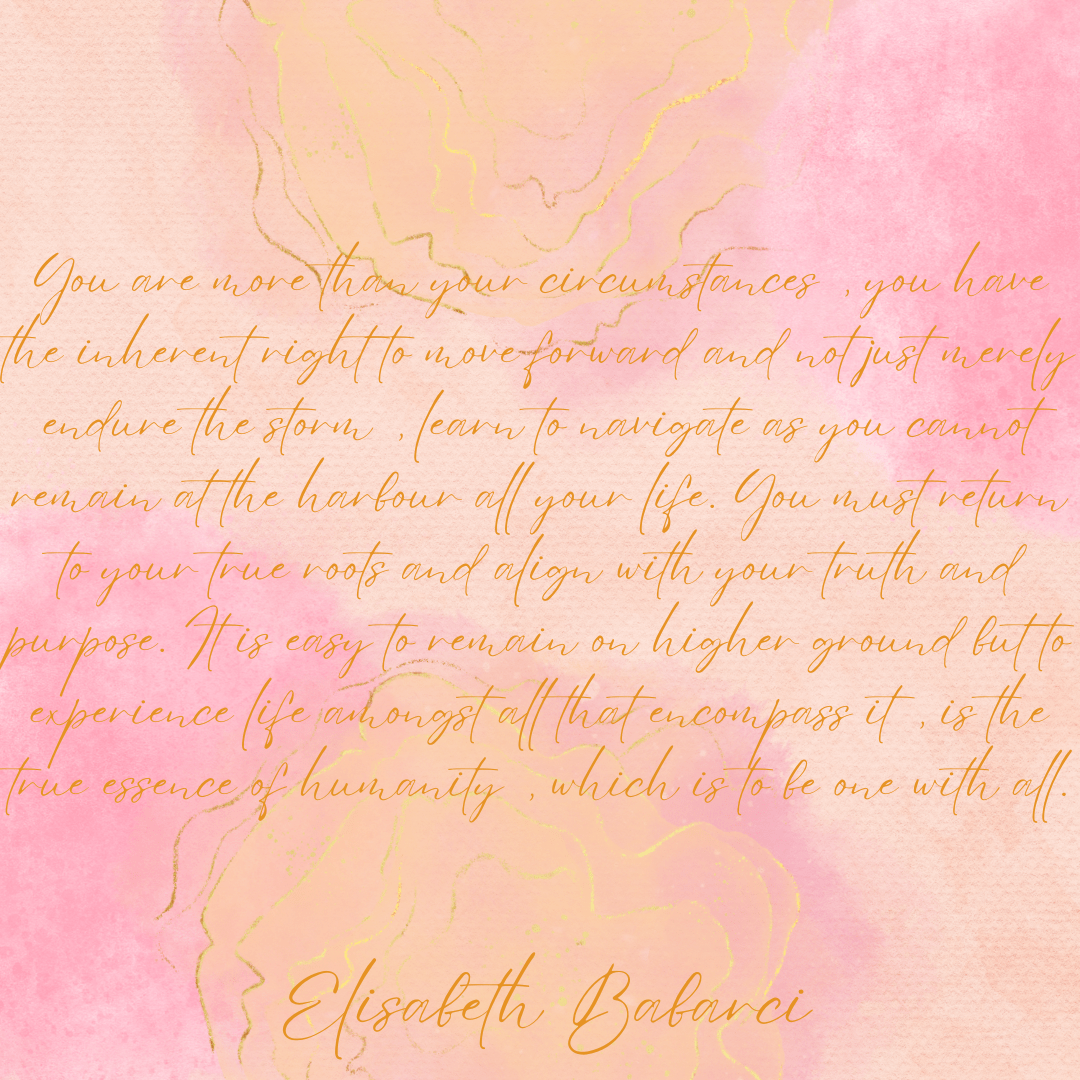 You are more than your circumstances , you have
the inherent right to move forward and not just merely
endure the storm , learn to navigate as you cannot
remain at the harbour all your life. You must return
to your true roots and align with your truth and
purpose. It is easy to remain on higher ground but to
experience life amongst all that encompass it , is the
true essence of humanity , which is to be one with all.
Elisabeth Babarci